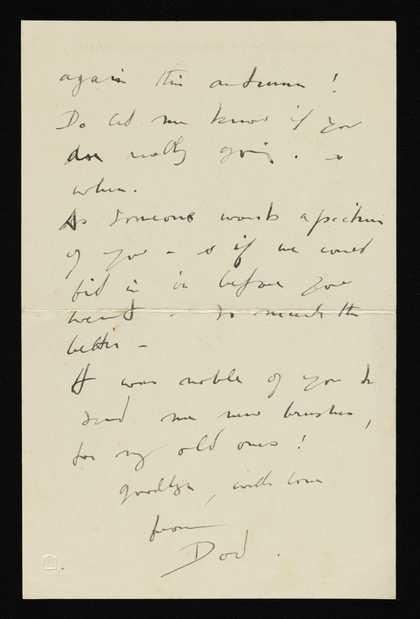 again this autumn!
Do let me know if you
are really going. &
when.
As someone wants a picture
of you – & if we could
fit it in before you
went – so much the
better –
It was noble of you to
send me new brushes,
for my old ones!
goodbye, with love
from
Dod.